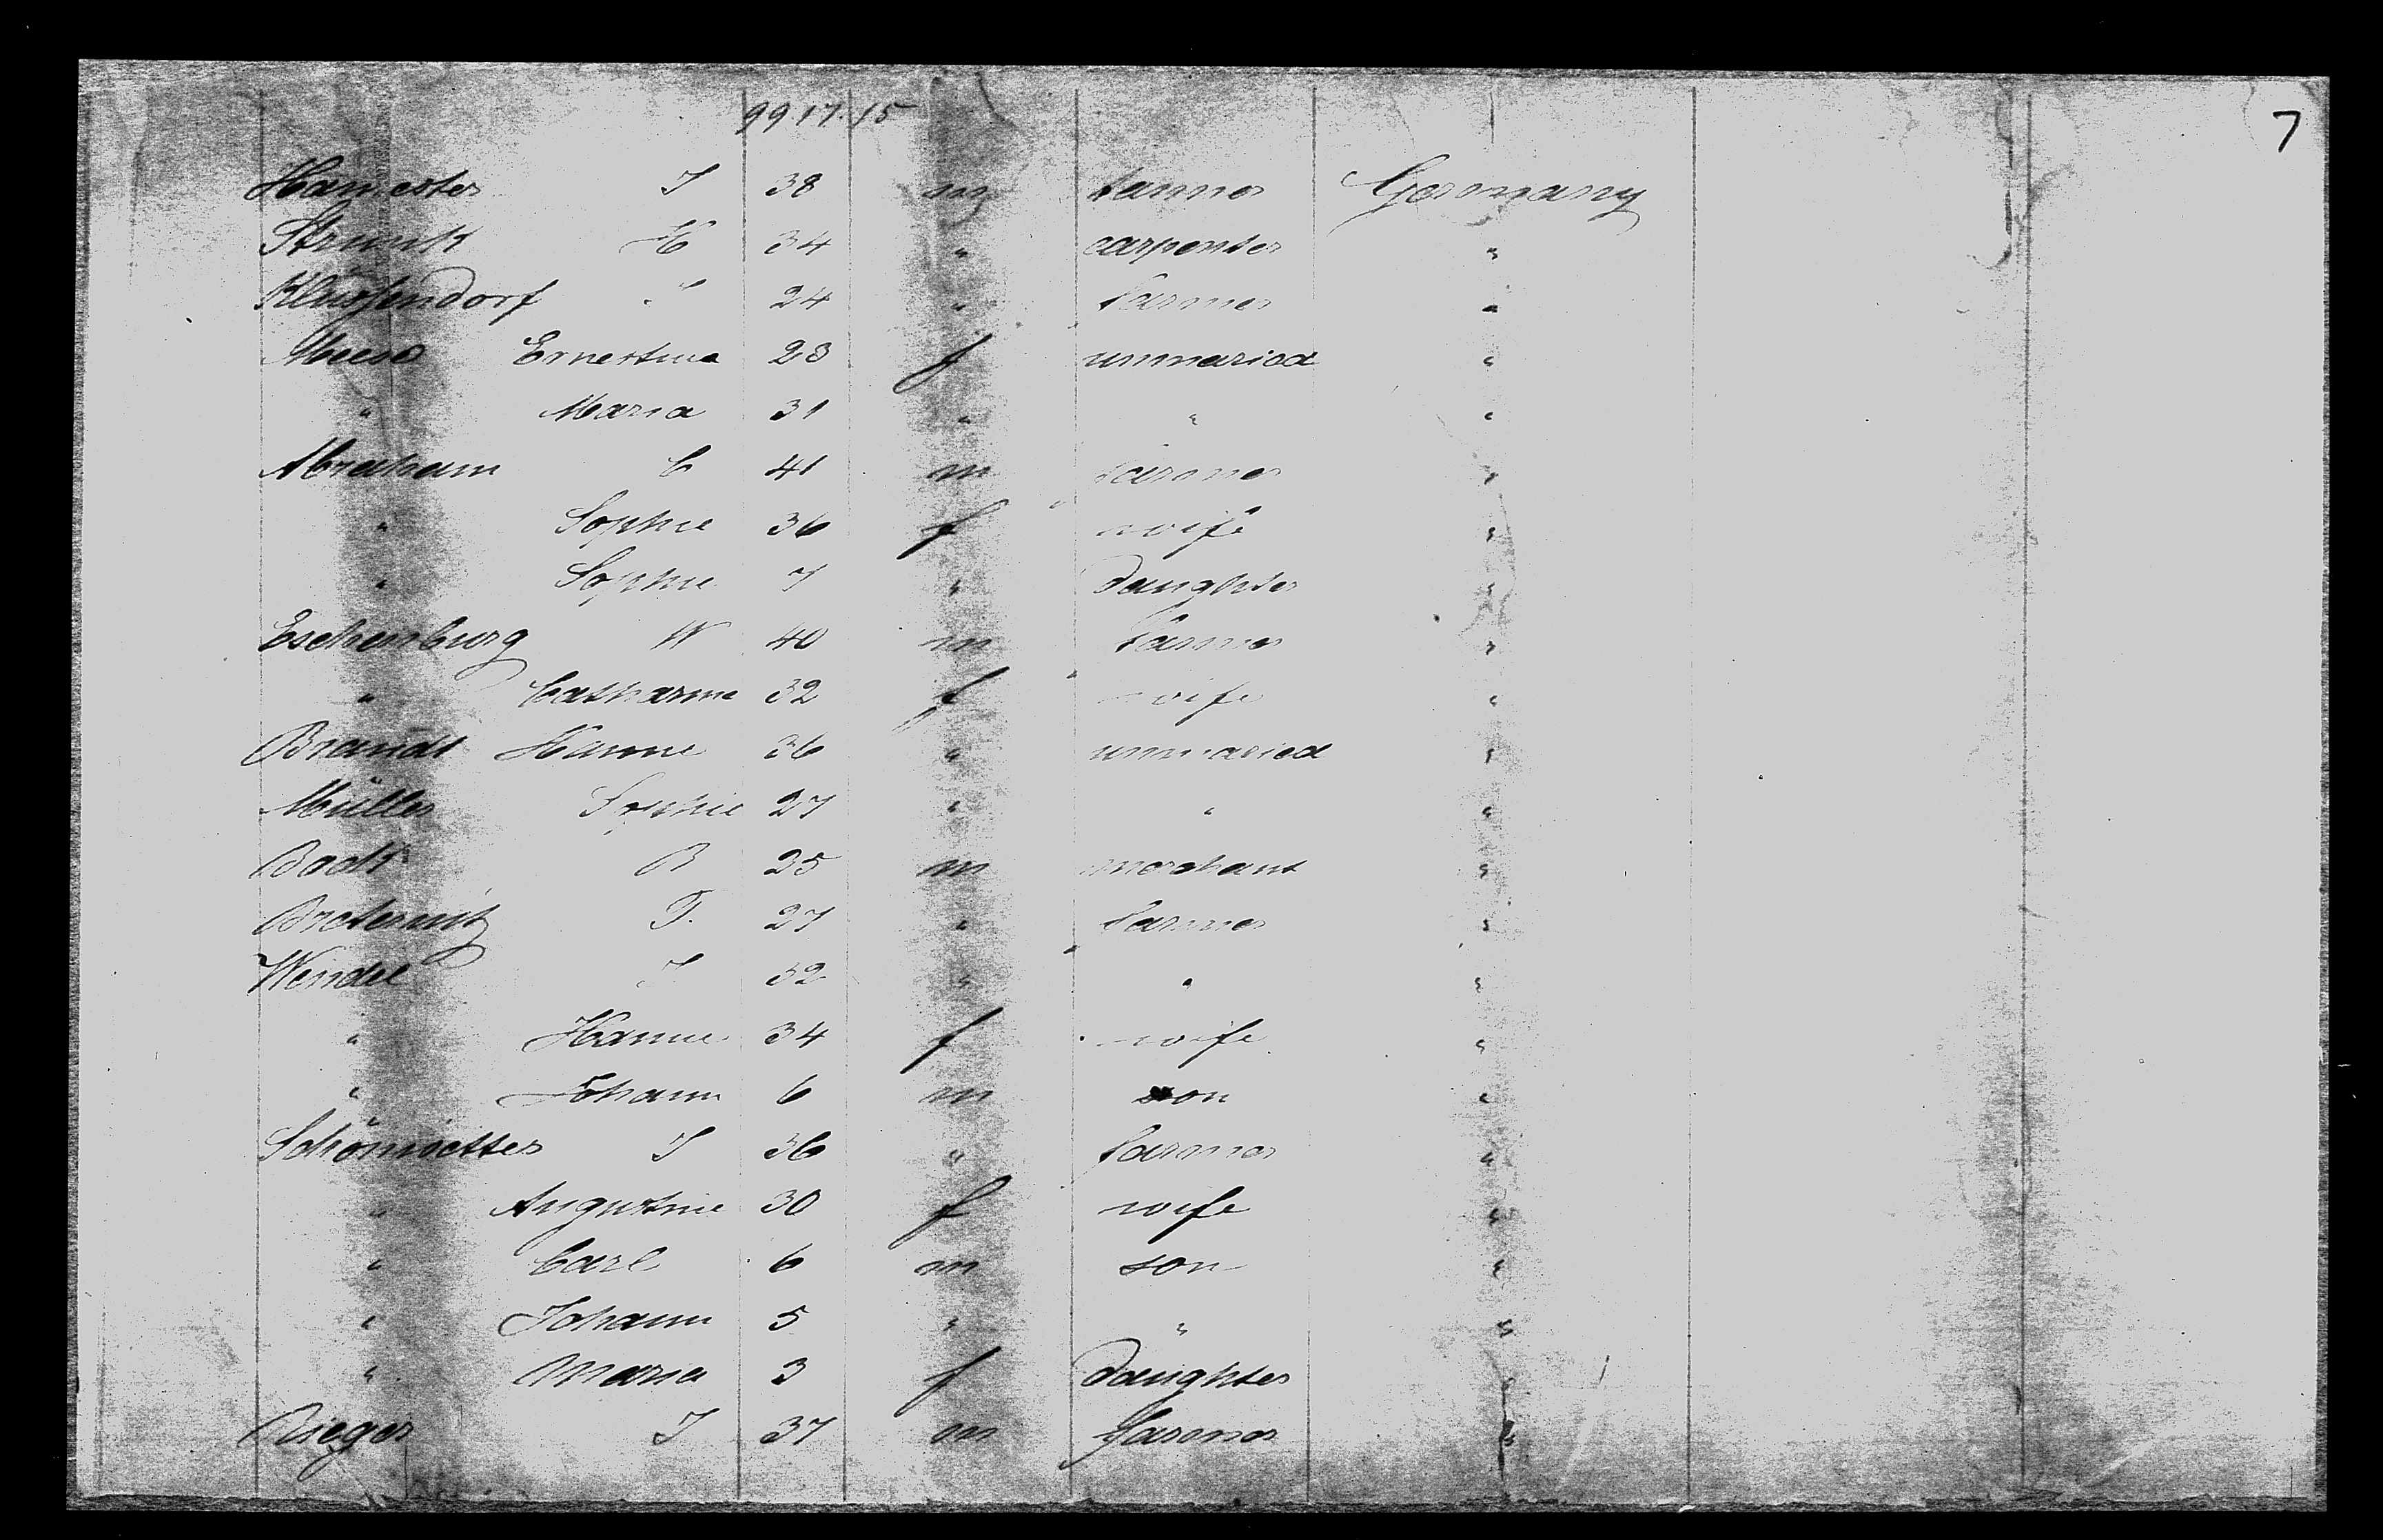 99 17. 15
7
Hamester J 38 m farmer Germany
Strunk H 34 " carpenter "
J 24 " farmer "
Ernestine 23 f unmaried "
" Maria 31 " " "
Abraham C 41 m farmer "
" Sophie 36 f wife "
" Sophie 7 " daughter "
Eschenburg W 40 m farmer "
" Catharine 32 f wife "
Brandt Hanne 36 " unmaried "
Müller Sophie 27 " " "
B 25 m merchant "
F. 27 " farmer "
Wendel J 32 " " "
" Hanne 34 f wife "
" Johann 6 m son "
J 36 " farmer "
" Augustine 30 f wife "
" Carl 6 m son "
" Johann 5 " " "
" Maria 3 f daughter
Rieger J 37 m farmer "